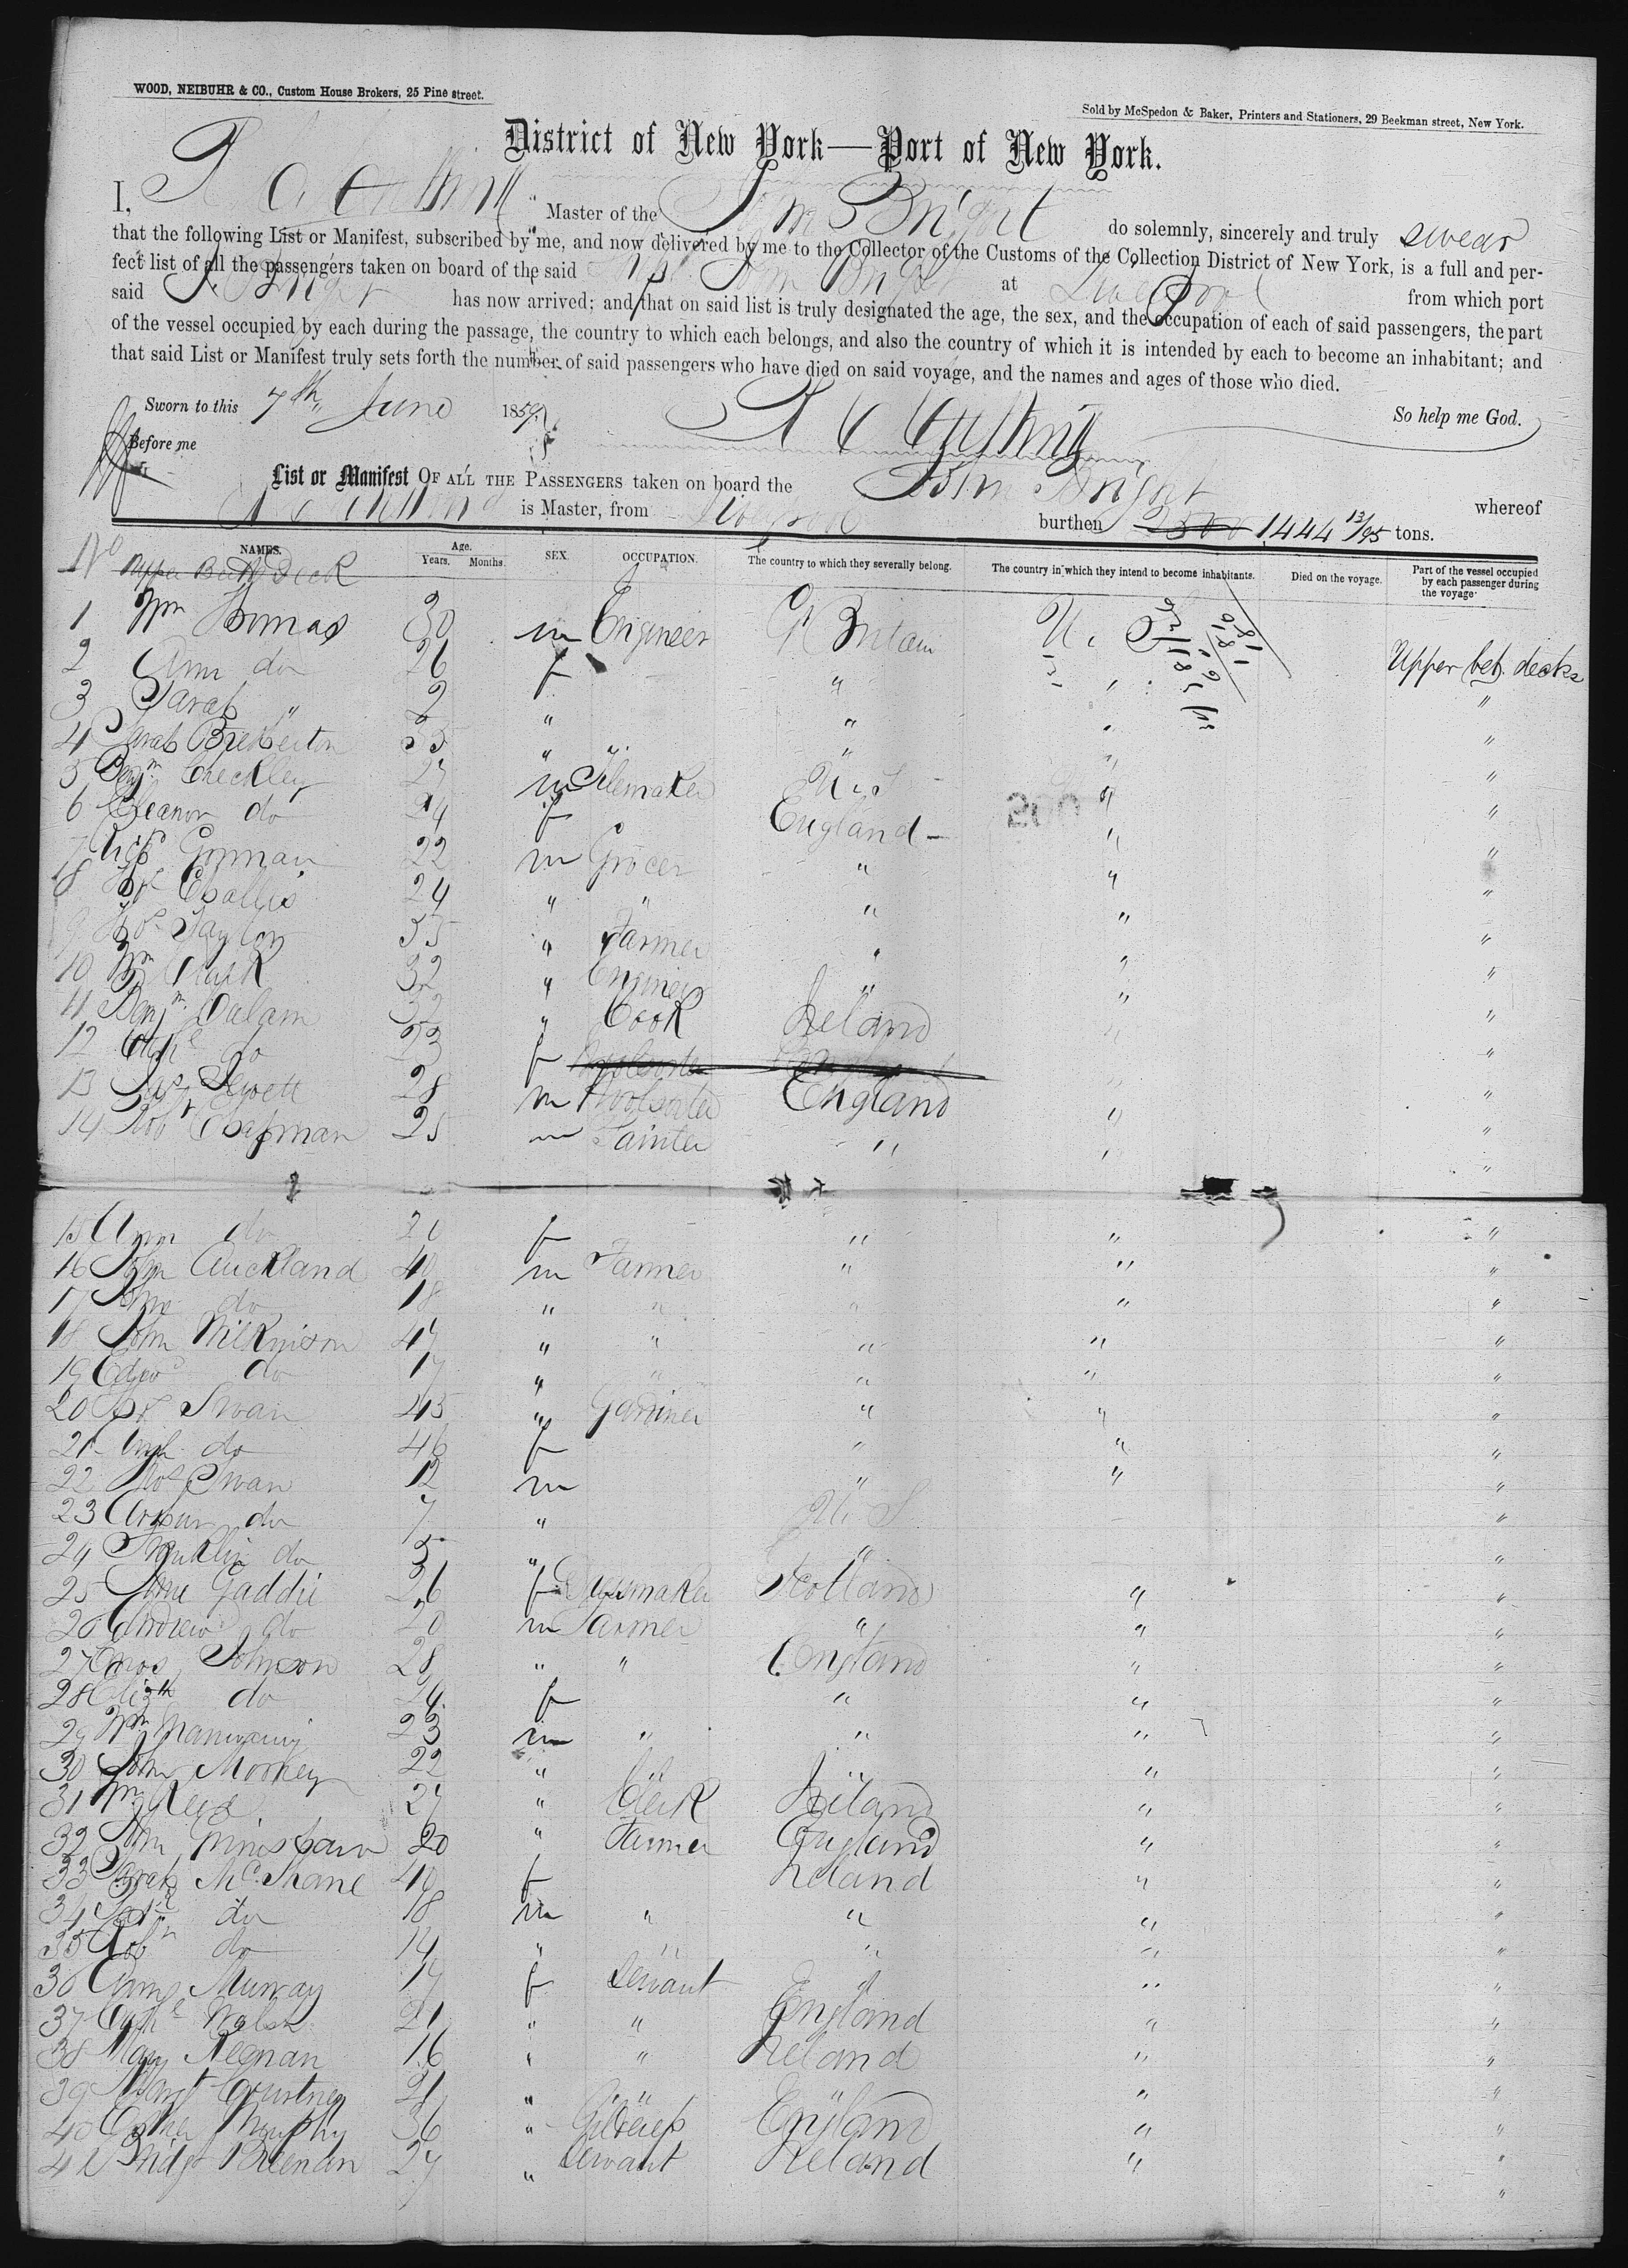 WOOD, NEIBUHR & CO., Custom House Brokers, 25 Pine street.
Sold by McSpedon & Baker, Printers and Stationers, 29 Beekman street, New York.
District of New York—Port of New York.
I, Master of the John Bright do solemnly, sincerely and truly swear
that the following List or Manifest, subscribed by me, and now delivered by me to the Collector of the Customs of the Collection District of New York, is a full and per-
fect list of all the passengers taken on board of the said Ship John Bright at Liverpool from which port
said J. Bright has now arrived; and that on said list is truly designated the age, the sex, and the occupation of each of said passengers, the part
of the vessel occupied by each during the passage, the country to which each belongs, and also the country of which it is intended by each to become an inhabitant; and
that said List or Manifest truly sets forth the number of said passengers who have died on said voyage, and the names and ages of those who died.
Sworn to this 7th June 1859 So help me God.
Before me
List or Manifest OF ALL THE PASSENGERS taken on board the John Bright whereof
is Master, from Liverpool burthen 1444 13/95 tons.
No NAMES. Age. Years. Months. SEX. OCCUPATION. The country to which they severally belong. The country in which they intend to become inhabitants. Died on the voyage. Part of the vessel occupied by each passenger during the voyage
Upper Deck
1 Wm Thomas 30 m Engineer Gt Britain U. S Upper bet. decks
2 Ann do 26 f " " "
3 Sarah " 2 " " " "
4 Sarah Brekerton 55 " " " "
5 Benjn Checkley 27 m U. S " "
6 Eleanor do 24 f England " "
7 Gorman 22 m Grocer " " "
8 24 " " " " "
9 Taylor 35 " Farmer " " "
10 Wm Clark 32 " Engineer " " "
11 Benjn Dalam 32 " Cook Ireland " "
12 Cathe do 23 f " "
13 Jas Jewett 28 m England " "
14 Robt Chapman 25 m Painter " " "
15 Ann do 20 f " " "
16 John Auckland 40 m Farmer " " "
17 do 18 " " " " "
18 John Wilkinson 47 " " " " "
19 Edwd do 17 " " " " "
20 Swan 45 " Gardiner " " "
21 do 46 f " " "
22 Swan 12 m " " "
23 Arthur do 7 " U. S "
24 Franklin do 5 " " "
25 Jane Gaddie 26 f Dressmaker Scotland " "
26 Andrew do 20 m Farmer " " "
27 Johnson 28 " " England " "
28 Elizth do 24 f " " "
29 Wm 23 m " " " "
30 John Mooney 22 " " " " "
31 Wm Reid 27 " Clerk Ireland " "
32 20 " Farmer England " "
33 Sarah McShane 40 f Ireland " "
34 do 18 m " " " "
35 do 14 " " " " "
36 Ann Murray 17 f Servant " " "
37 Cathe Walsh 21 " " England " "
38 Mary Keenan 16 " " Ireland " "
39 Margt Courtney 21 " " " " "
40 Murphy 36 " England " "
41 Bridgt Breenan 27 " Servant Ireland " "